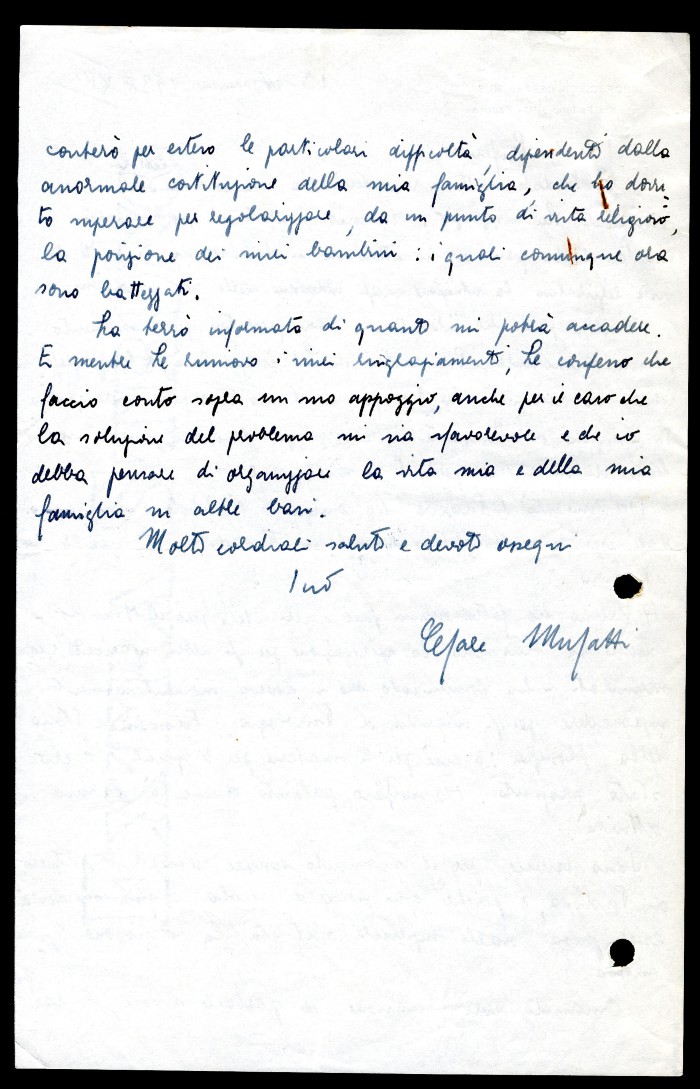 conterò per estero le particolari difficoltà, dipendenti dalla
anormale costituzione della mia famiglia, che ho dovu
to superare per regolarizzare, da un punto di vista religioso,
la posizione dei miei bambini: i quali comunque ora
sono battezzati.
La terrò informata di quanto mi potrà accadere.
E mentre Le rinnovo i miei ringraziamenti, Le confesso che
faccio conto sopra un suo appoggio, anche per il caso che
la soluzione del problema mi sia sfavorevole e che io
debba pensare di organizzare la vita mia e della mia
famiglia su altre basi.
Molti cordiali saluti e devoti ossequi
Suo
Cesare Musatti